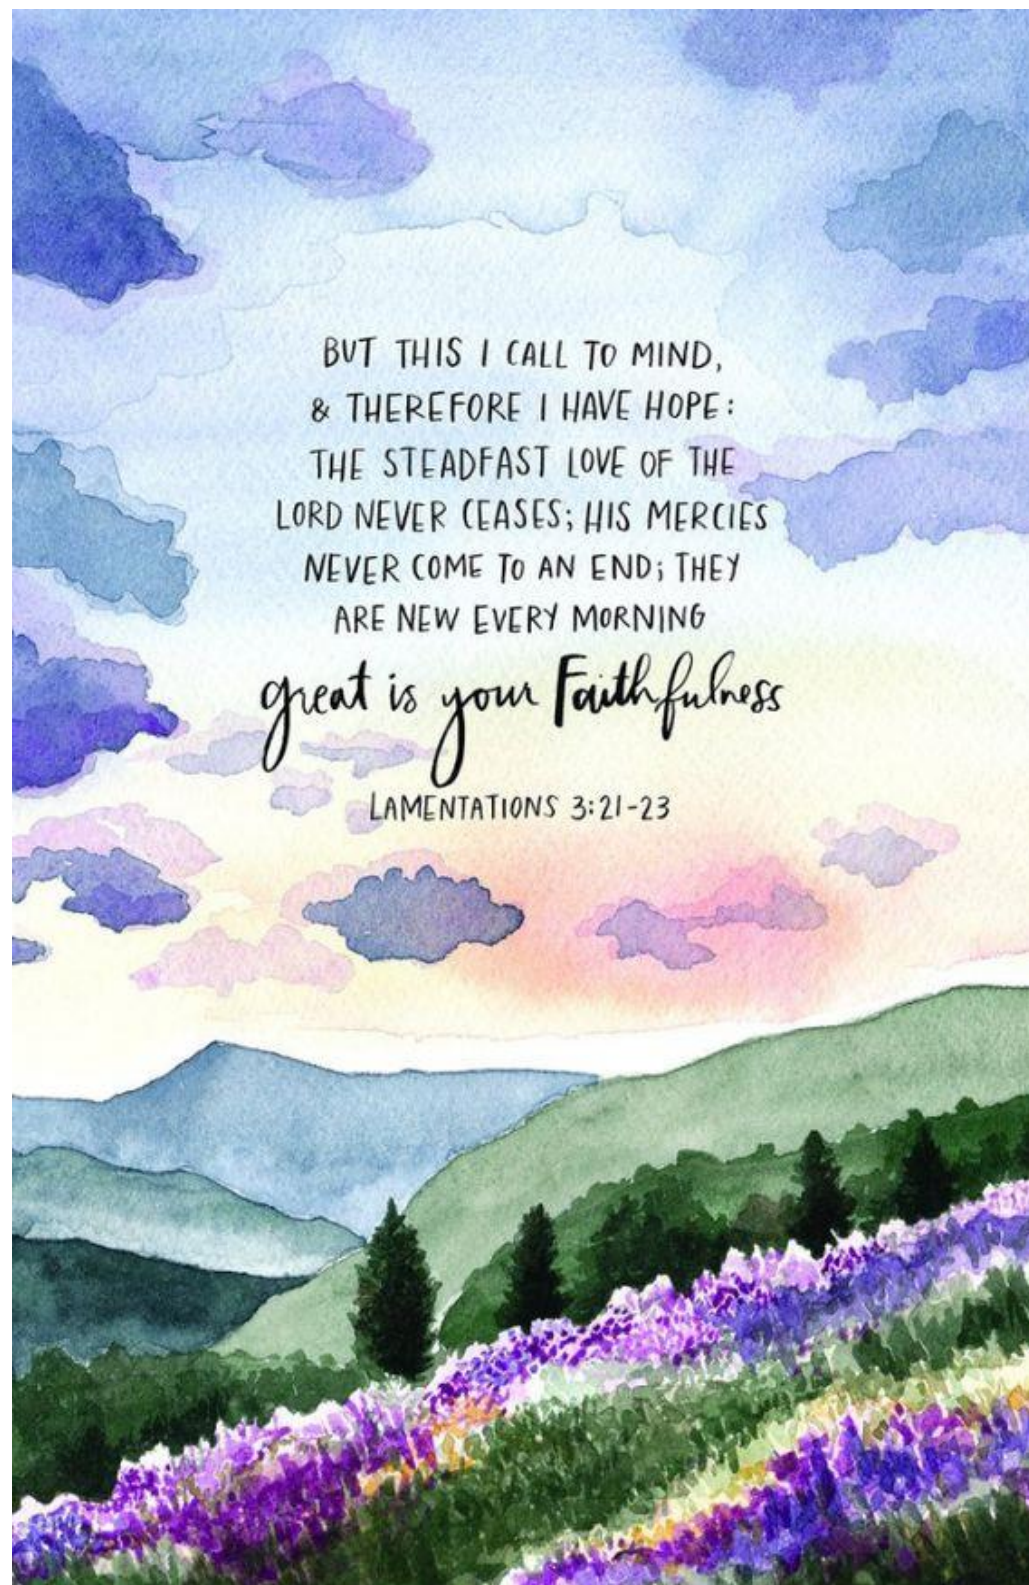 BUT THIS I CALL TO MIND,
& THEREFORE I HAVE HOPE:
THE STEADFAST LOVE OF THE
LORD NEVER CEASES; HIS MERCIES
NEVER COME TO AN END; THEY
ARE NEW EVERY MORNING
great is your Faithfulness
LAMENTATIONS 3:21-23